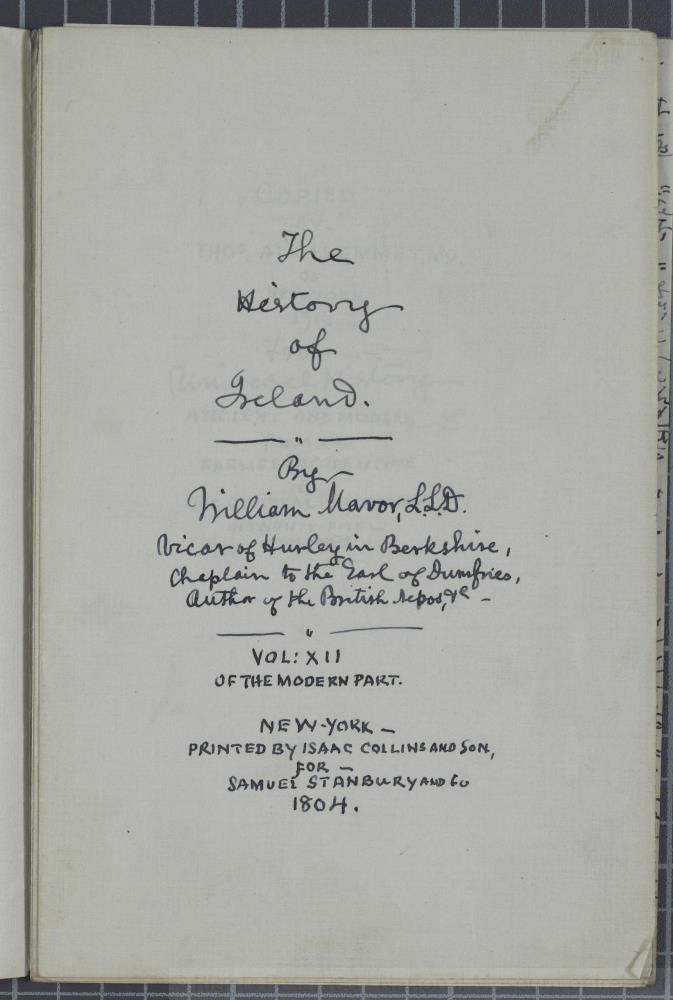 The
History
of
Ireland.
By
William Mavor, L.L.D.
Vicar of Hurley in Berkshire,
Chaplain to the Earl of Dumfries,
Author of the British Nepos, &c -
VOL: XII
OF THE MODERN PART.
NEW-YORK -
PRINTED BY ISAAC COLLINS AND SON,
FOR -
SAMUEL STANBURY AND Co
1804.